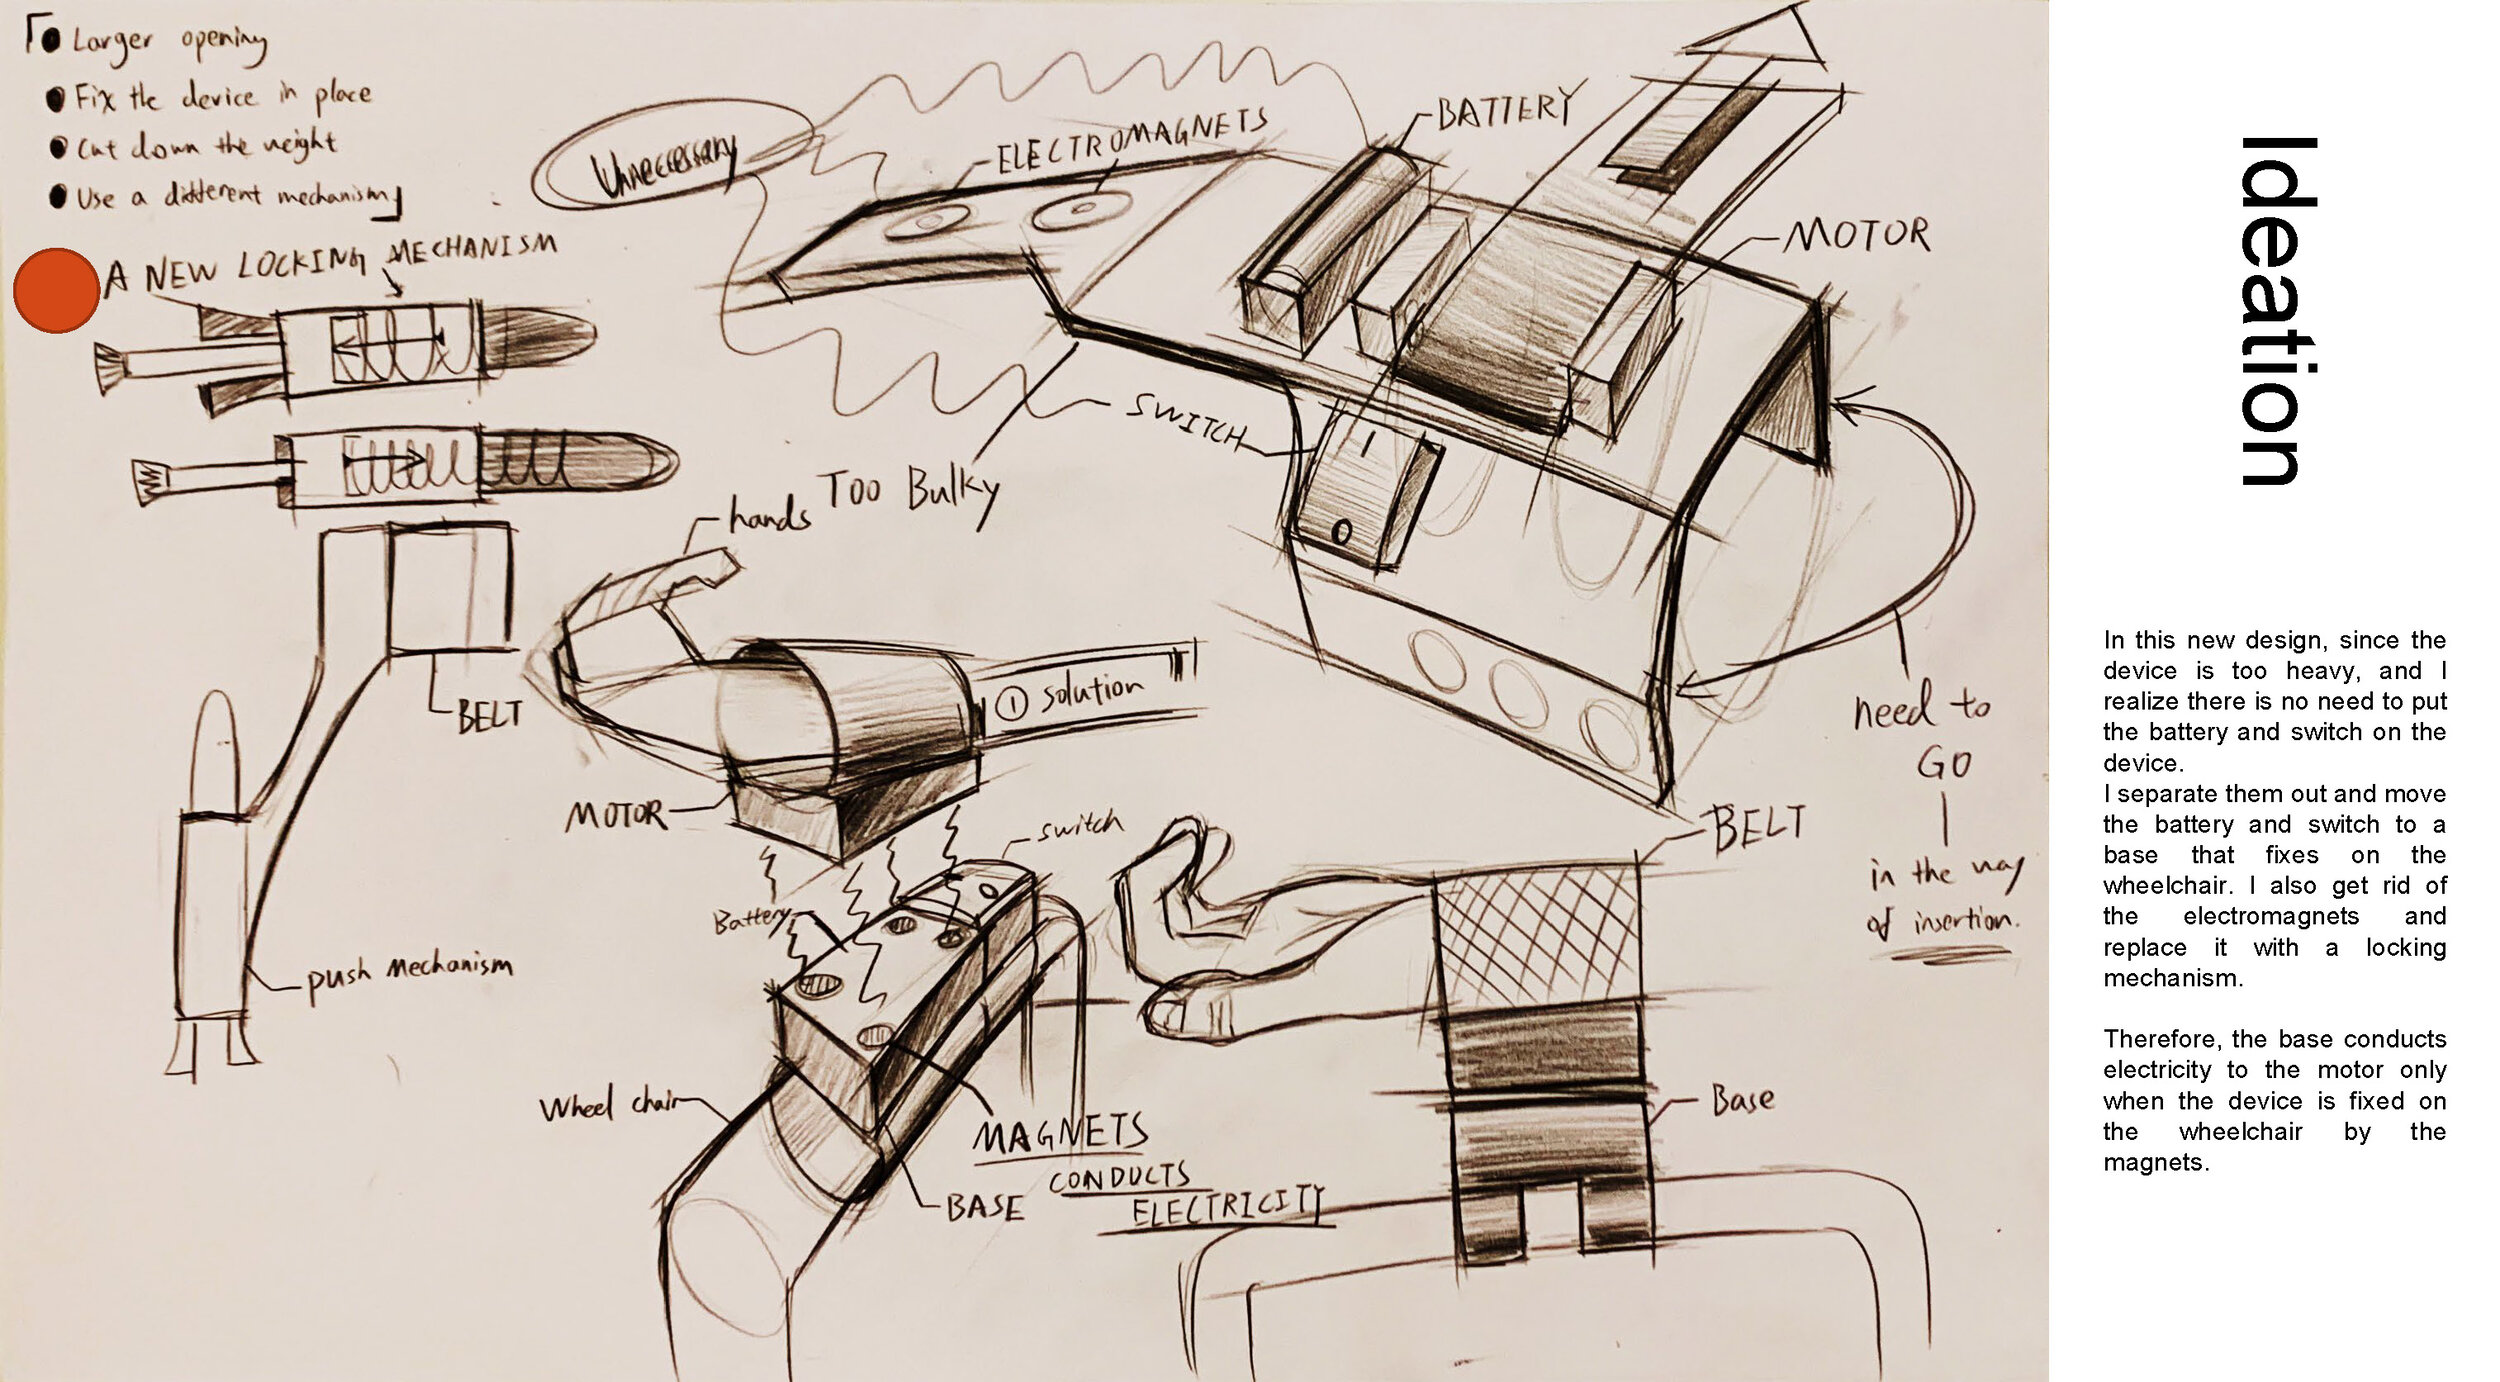 Larger opening
Fix the device in place
Cut down the weight
Use a different mechanism
A NEW LOCKING MECHANISM
Unneccessary
ELECTROMAGNETS
BATTERY
MOTOR
SWITCH
TOO Bulky
hands
BELT
① solution
MOTOR
switch
Battery
push Mechanism
need to
GO
in the way
of insertion.
BELT
Wheel chair
MAGNETS
CONDUCTS
ELECTRICITY
BASE
Base
Ideation
In this new design, since the
device is too heavy, and I
realize there is no need to put
the battery and switch on the
device.
I separate them out and move
the battery and switch to a
base that fixes on the
wheelchair. I also get rid of
the electromagnets and
replace it with a locking
mechanism.
Therefore, the base conducts
electricity to the motor only
when the device is fixed on
the wheelchair by the
magnets.